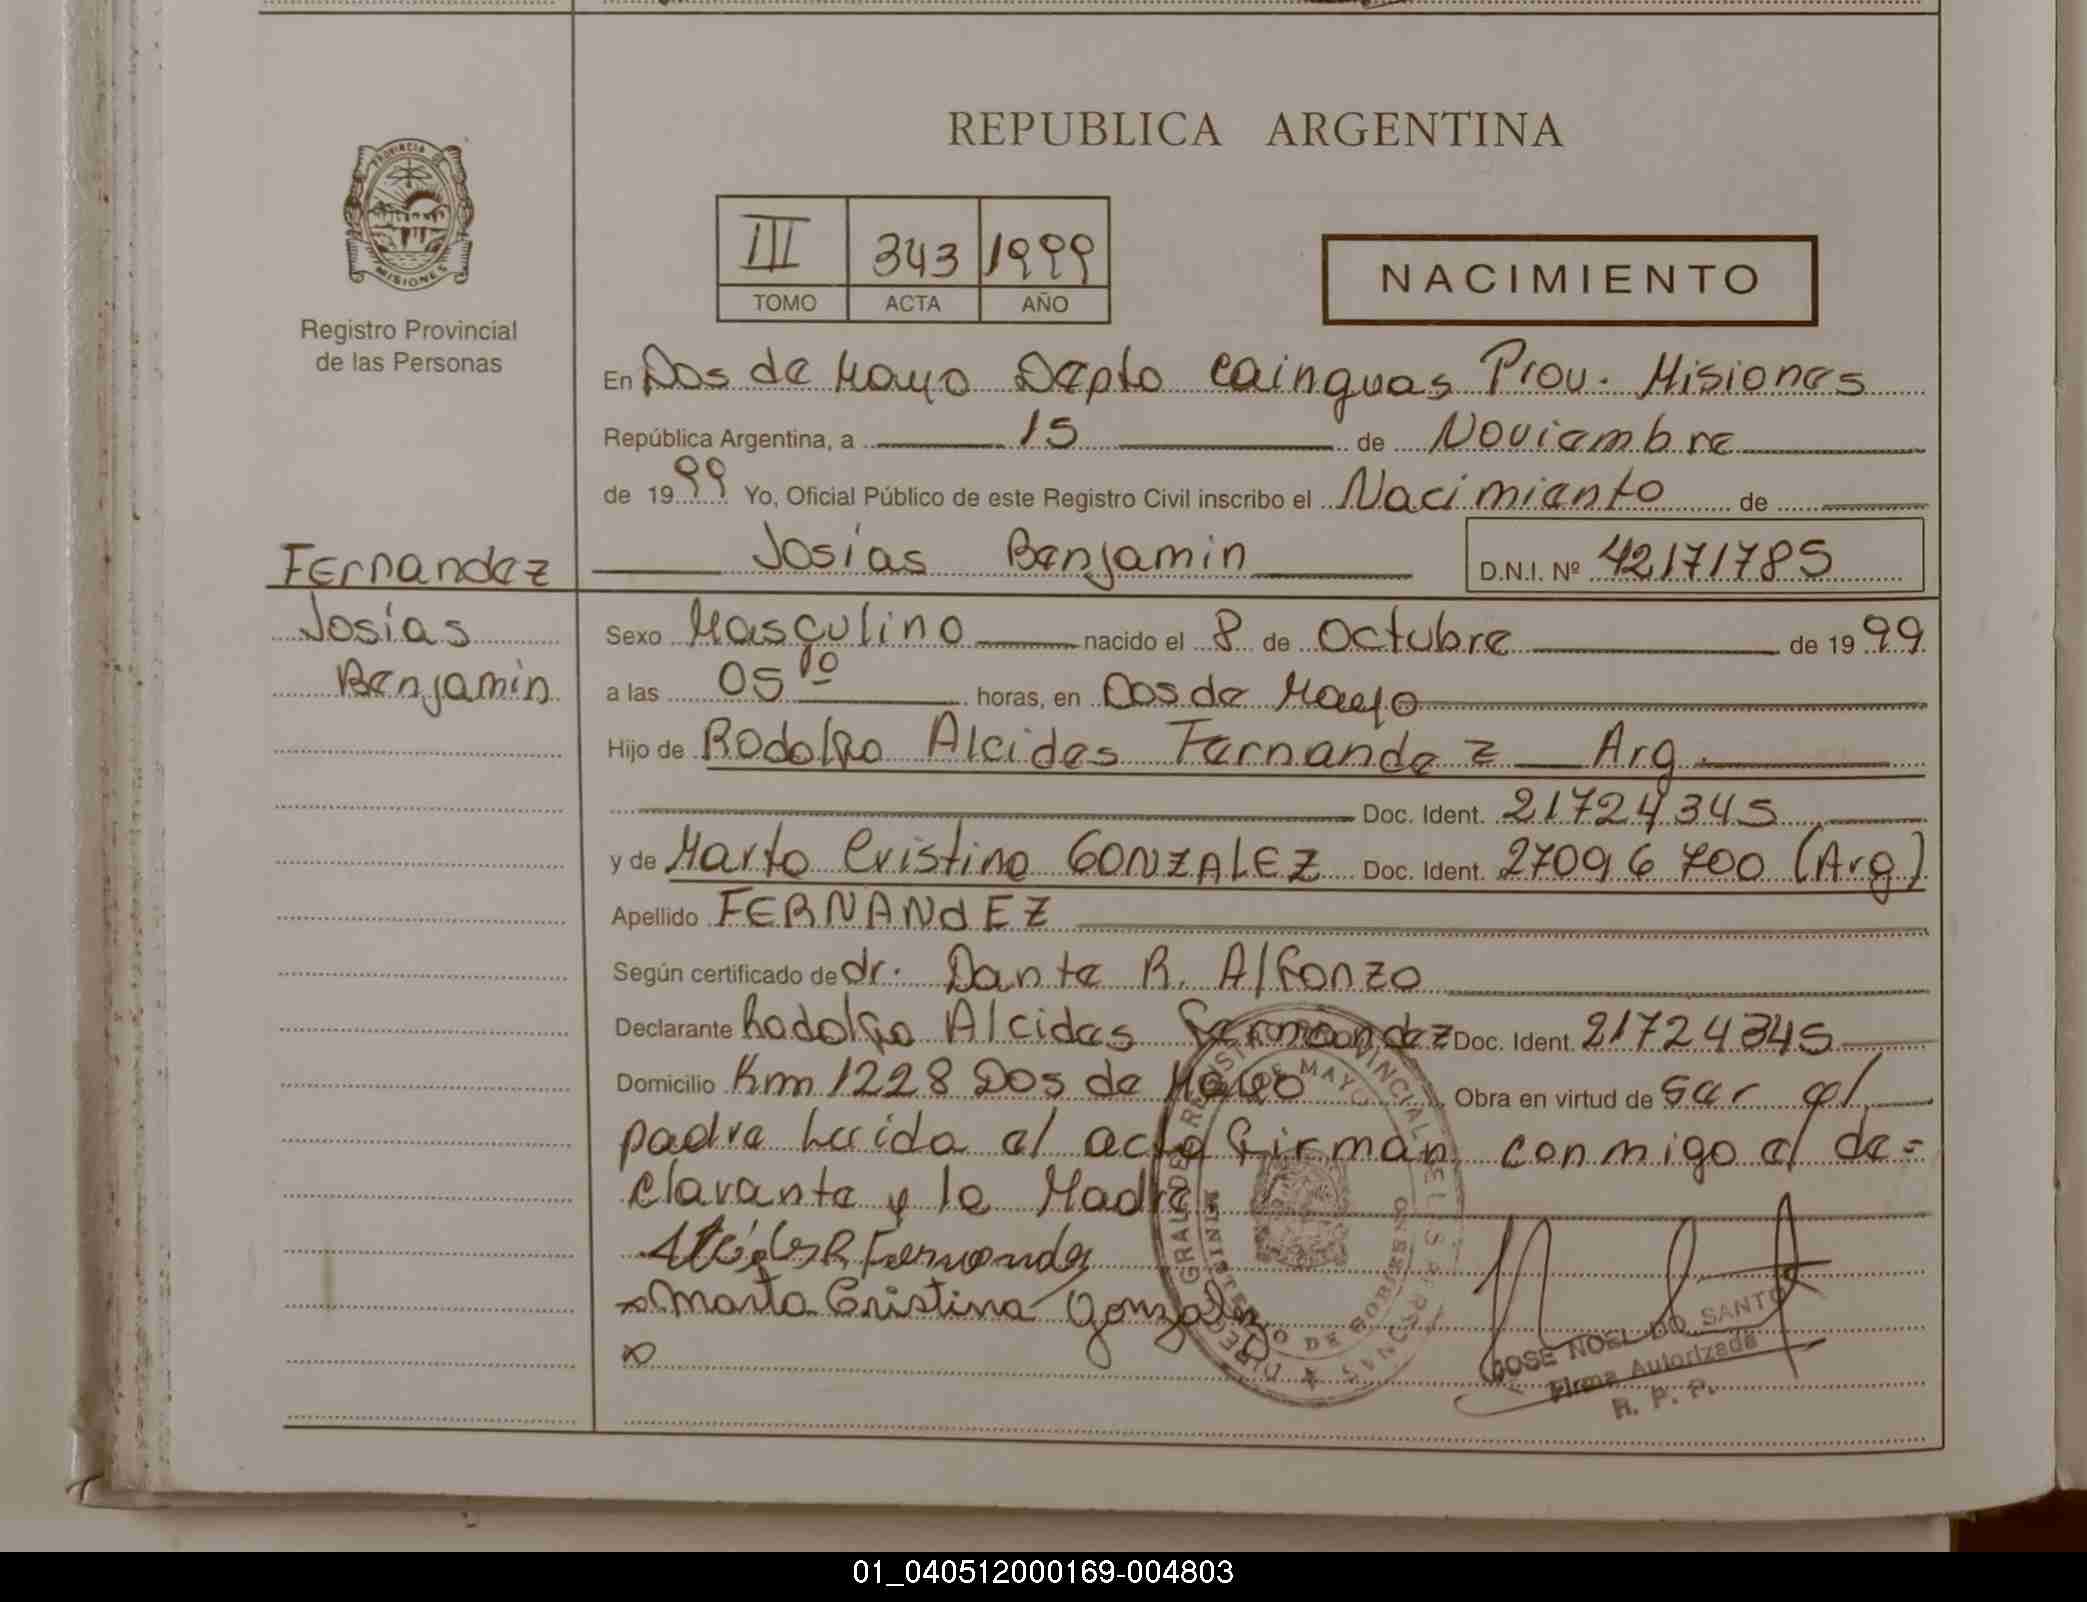 REPUBLICA ARGENTINA
PROVINCIA DE
MISIONES
Registro Provincial
de las Personas
III 343 1999
TOMO ACTA AÑO
NACIMIENTO
En Dos de Mayo Depto Cainguas Prov. Misiones
República Argentina, a 15 de Noviembre
de 1999 Yo, Oficial Público de este Registro Civil inscribo el Nacimiento de
Josías Benjamin D.N.I. Nº 42171785
Fernandez
Josías
Benjamin
Sexo Masculino nacido el 8 de Octubre de 1999
a las 05 10 horas, en Dos de Mayo
Hijo de Rodolfo Alcides Fernandez Arg.
Doc. Ident. 21724345
y de Marta Cristina GONZALEZ Doc. Ident. 27096700 (Arg)
Apellido FERNANdEZ
Según certificado de dr. Dante R. Alfonzo
Declarante Rodolfo Alcides Fernandez Doc. Ident. 21724345
Domicilio Km 1228 Dos de Mayo Obra en virtud de ser el
padre Leida el acta firman conmigo el de=
clarante y la Madre
Alcides R Fernandez
Marta Cristina Gonzalez
JOSE NOEL DO SANTO
Firma Autorizada
R. P. P.
01_040512000169-004803